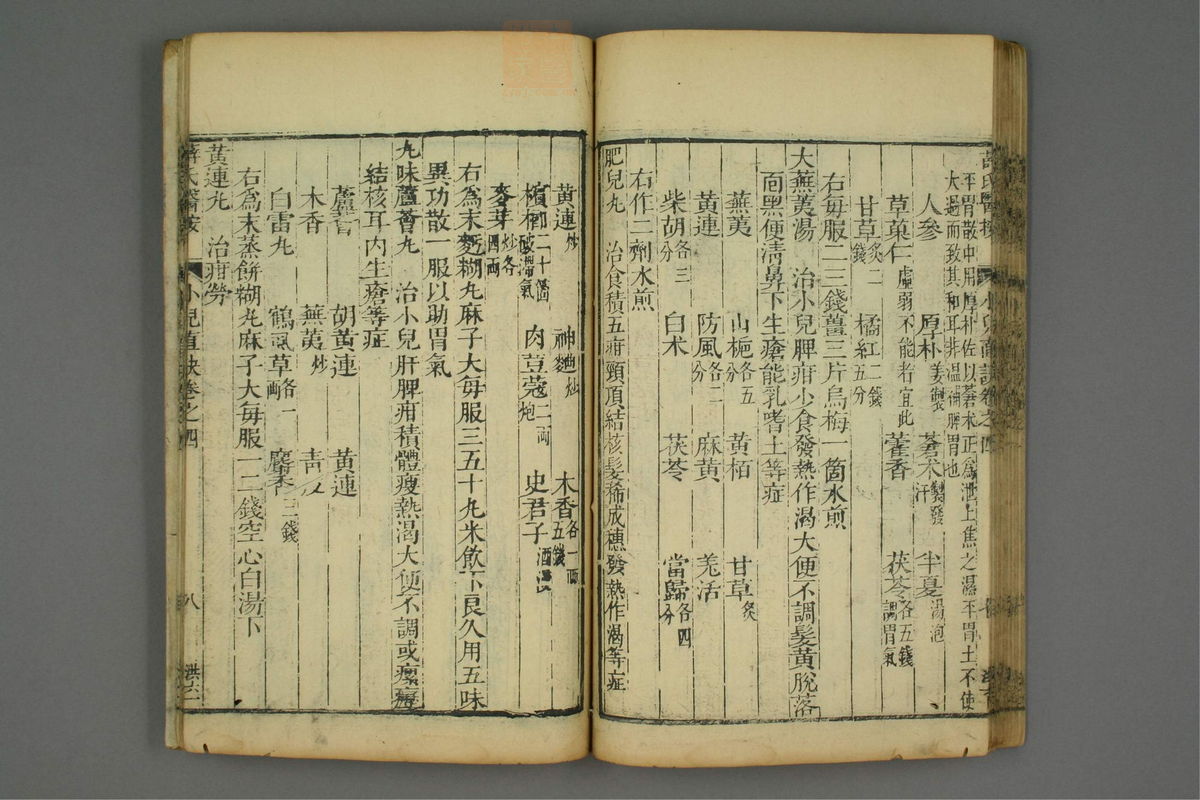 薛氏醫按 小兒直訣卷之四
平胃散中用厚朴佐以蒼术正爲泄上焦之濕平胃土不使
大過而致其和耳非温補脾胃也
人參 厚朴姜製 蒼术製發汗 半夏湯泡
草菓仁虛弱不能者宜此 藿香 茯苓各五錢調胃氣
甘草炙二錢 橘紅二錢五分
右每服二三錢薑三片烏梅一箇水煎
大蕪荑湯 治小兒脾疳少食發熱作渴大便不調髮黃脫落
面黑便清鼻下生瘡能乳嗜土等症
蕪荑 山梔各五分 黃栢 甘草炙
黃連 防風各二分 麻黃 羗活
柴胡各三分 白术 茯苓 當歸各四分
右作二劑水煎
肥兒丸 治食積五疳頸項結核髮稀成穗發熱作渴等症
黃連炒 神麯炒 木香各一兩五錢
檳榔二十箇破滯氣 肉荳蔻二兩炮 史君子酒浸
麥芽炒各四兩
右爲末麪糊丸麻子大每服三五十丸米飲下良久用五味
異功散一服以助胃氣
九味蘆薈丸 治小兒肝脾疳積體瘦熱渴大便不調或瘰癧
結核耳內生瘡等症
蘆薈 胡黃連 黃連
木香 蕪荑炒 青皮
白雷丸 鶴虱草各一兩 麝香三錢
右爲末蒸餅糊丸麻子大每服一二錢空心白湯下
黃連丸 治疳勞
薛氏醫按 小兒直訣卷之四 八